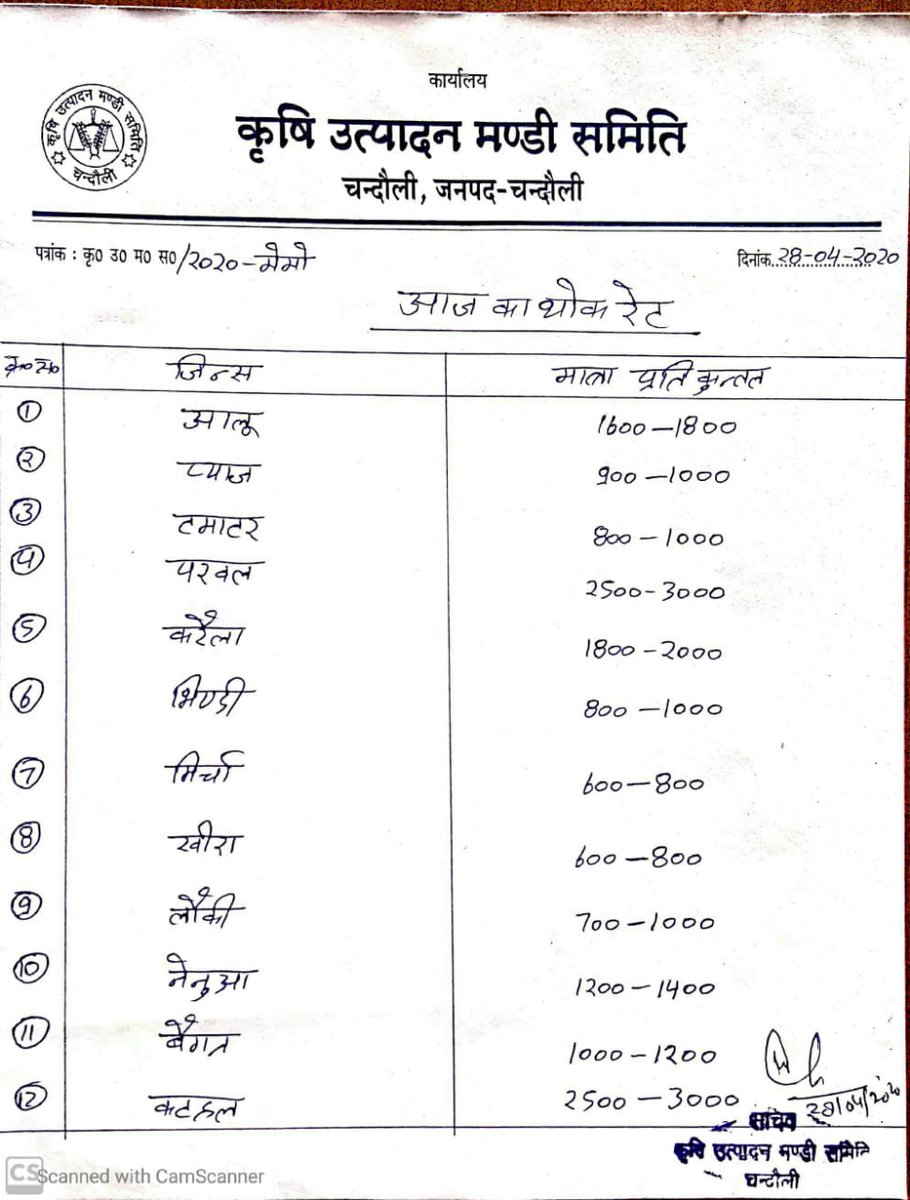 कार्यालय
कृषि उत्पादन मण्डी समिति
चन्दौली
कृषि उत्पादन मण्डी समिति
चन्दौली, जनपद-चन्दौली
पत्रांक : कृ० उ० म० स०/२०२०-मेमो
दिनांक 28-04-२०२०
आज का थोक रेट
क्र०सं० जिन्स मात्रा प्रति कुन्तल
① आलू 1600-1800
② प्याज 900-1000
③ टमाटर 800-1000
④ परवल 2500-3000
⑤ करैला 1800-2000
⑥ भिण्डी 800-1000
⑦ मिर्चा 600-800
⑧ खीरा 600-800
⑨ लौकी 700-1000
⑩ नेनुआ 1200-1400
⑪ बैगन 1000-1200
⑫ कटहल 2500-3000
28/04/2020
सचिव
कृषि उत्पादन मण्डी समिति
चन्दौली
CS Scanned with CamScanner